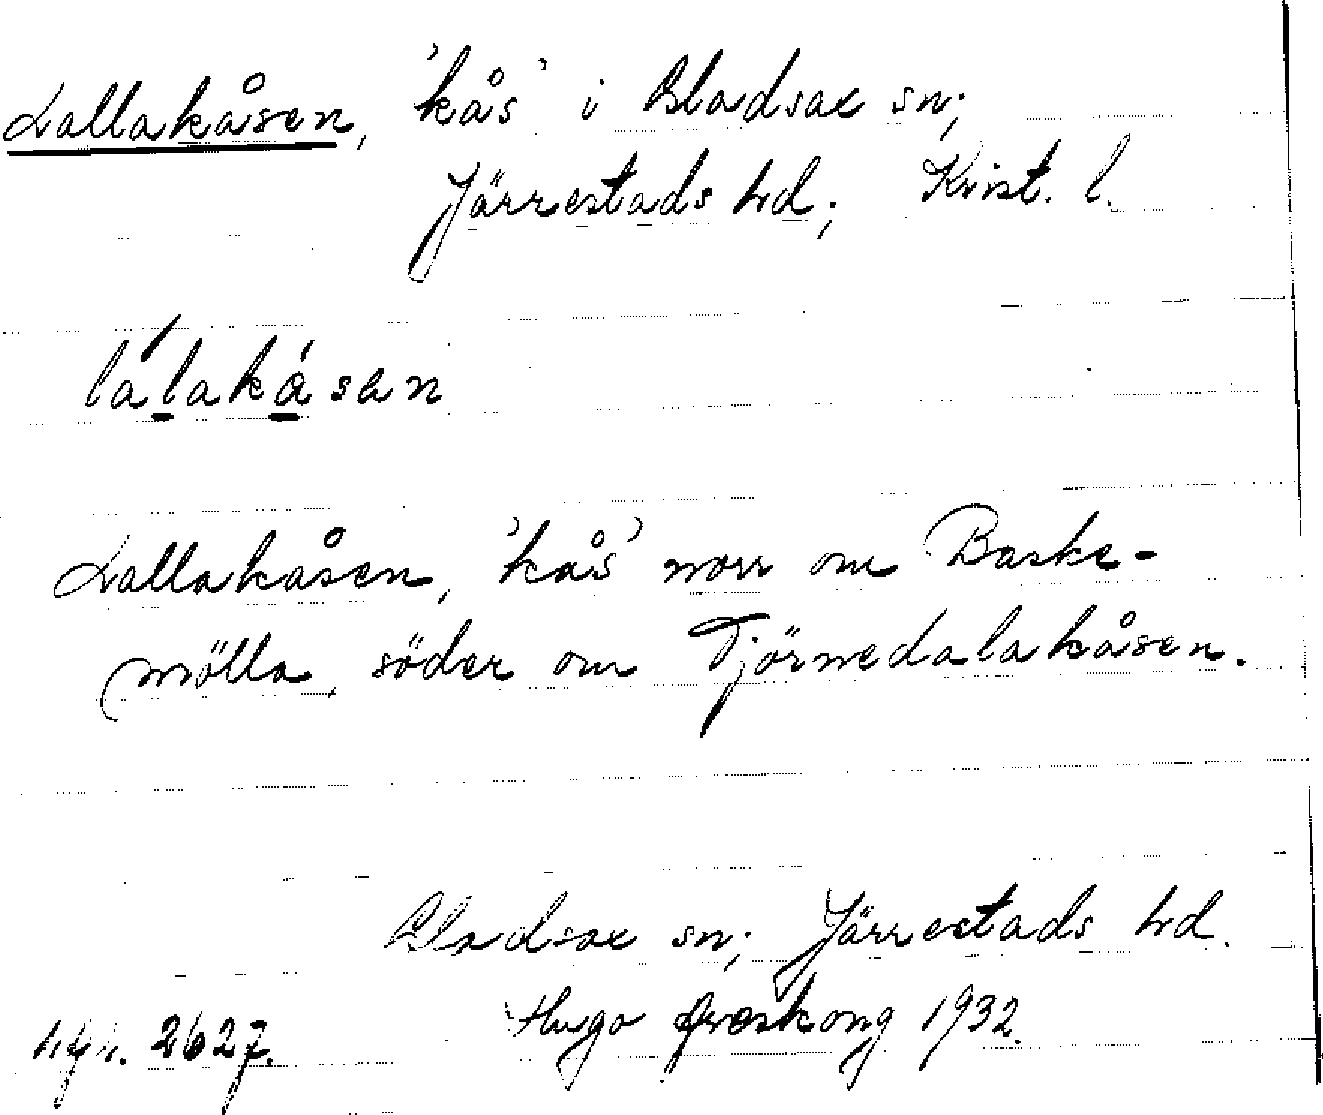 Lallakåsen, 'kås' i Bladsax sn;
Järrestads hd; Krist. l.
lálakåsen
Lallakåsen, 'kås' norr om Baske-
mölla, söder om Tjörnedalakåsen.
Bladsax sn; Järrestads hd.
Hugo Areskoug 1932.
2627.